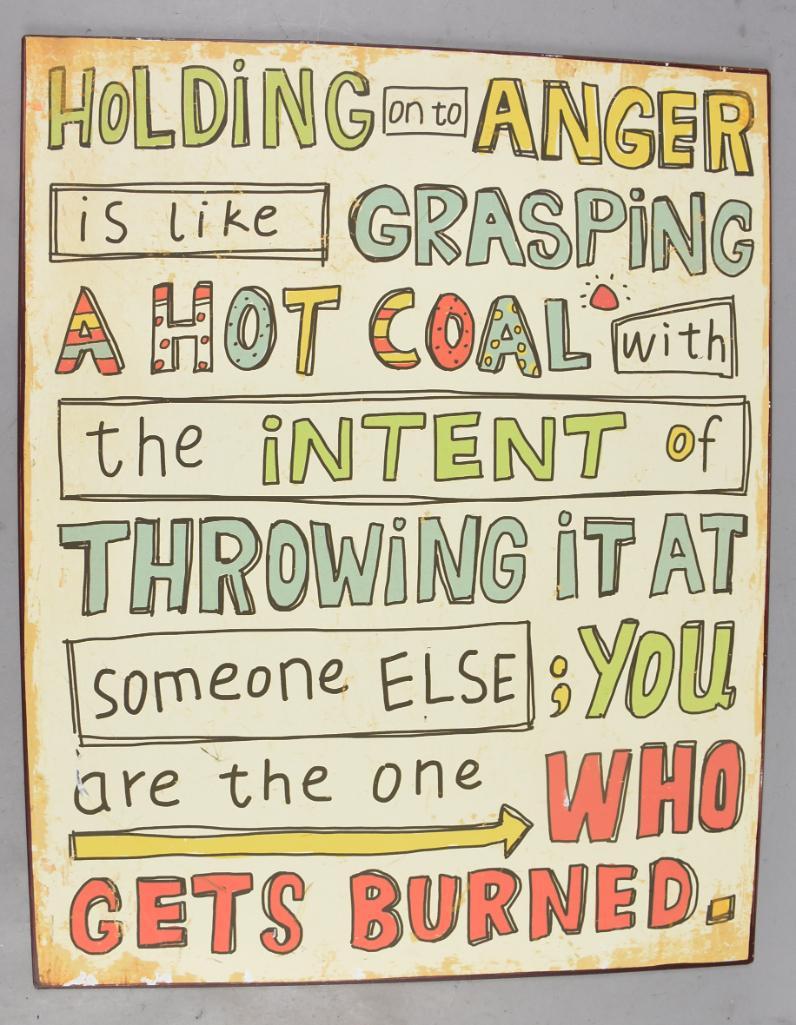 HOLDiNG on to ANGER
is like GRASPiNG
A HOT COAL with
the iNTENT of
THROWiNG iT AT
someone ELSE ; YOU
are the one WHO
GETS BURNED.